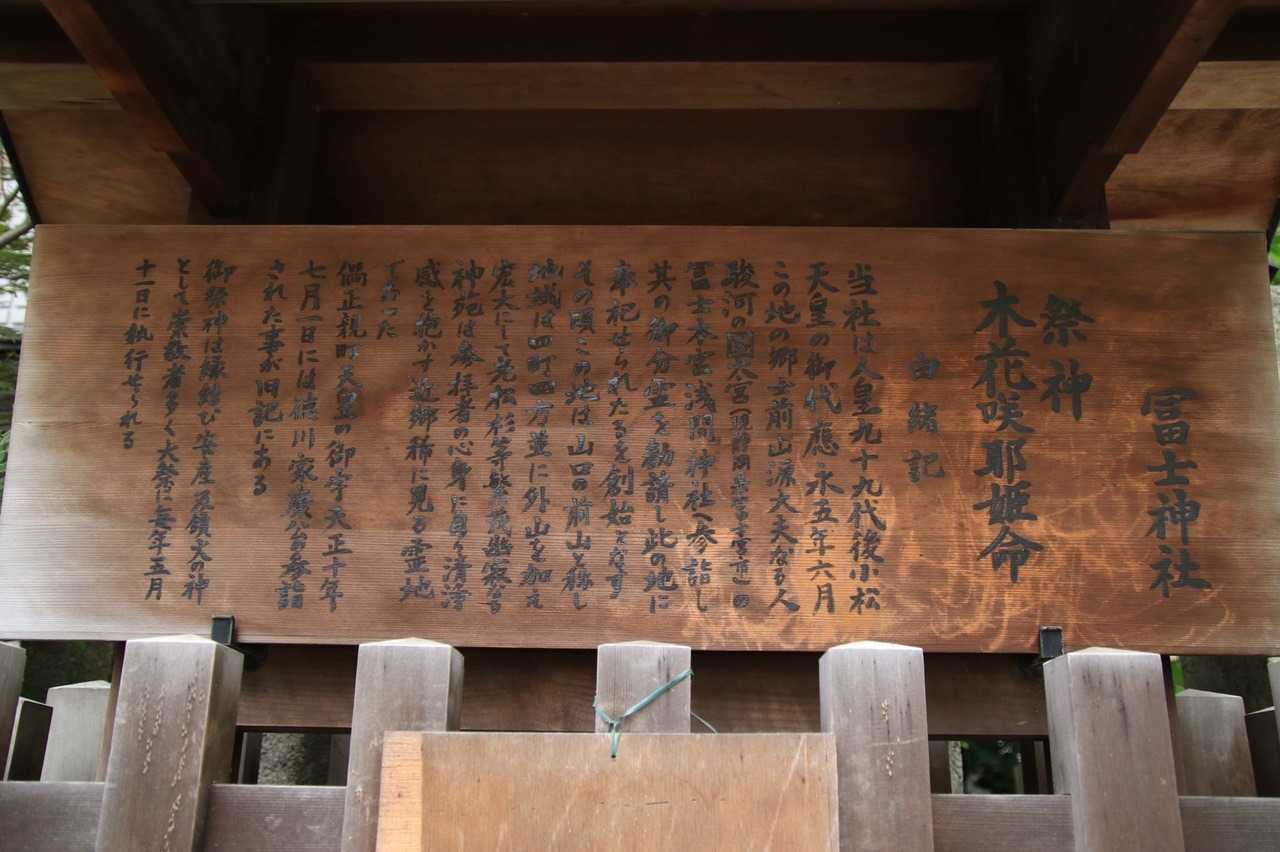 冨士神社
祭神
木花咲耶姫命
由緒記
当社は人皇九十九代後小松
天皇の御代應永五年六月
この地の郷士前山源大夫なる人
駿河の國大宮(現静岡県富士宮市)の
冨士本宮浅間神社へ参詣し
其の御分霊を勧請し此の地に
奉祀せられたるを創始となす
その頃この地は山口の前山と稱し
地域は四町四方並に外山を加え
宏大にして老松杉等繁茂幽寂なる
神苑は参拝者の心身に自ら清浄
感を抱かす近郷稀に見る霊地
であった
正親町天皇の御宇天正十年
七月一日には徳川家康公の参詣
された事が旧記にある
御祭神は縁結び安産の神
として崇敬者多く大祭は毎年五月
十一日に執行せられる